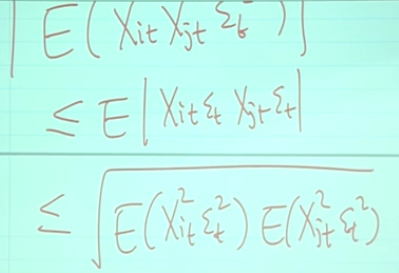 |E(X_{it} X_{jt} Σ_t^2)|
≤ E|X_{it} Σ_t X_{jt} Σ_t|
≤ √(E(X_{it}^2 Σ_t^2) E(X_{jt}^2 Σ_t^2))